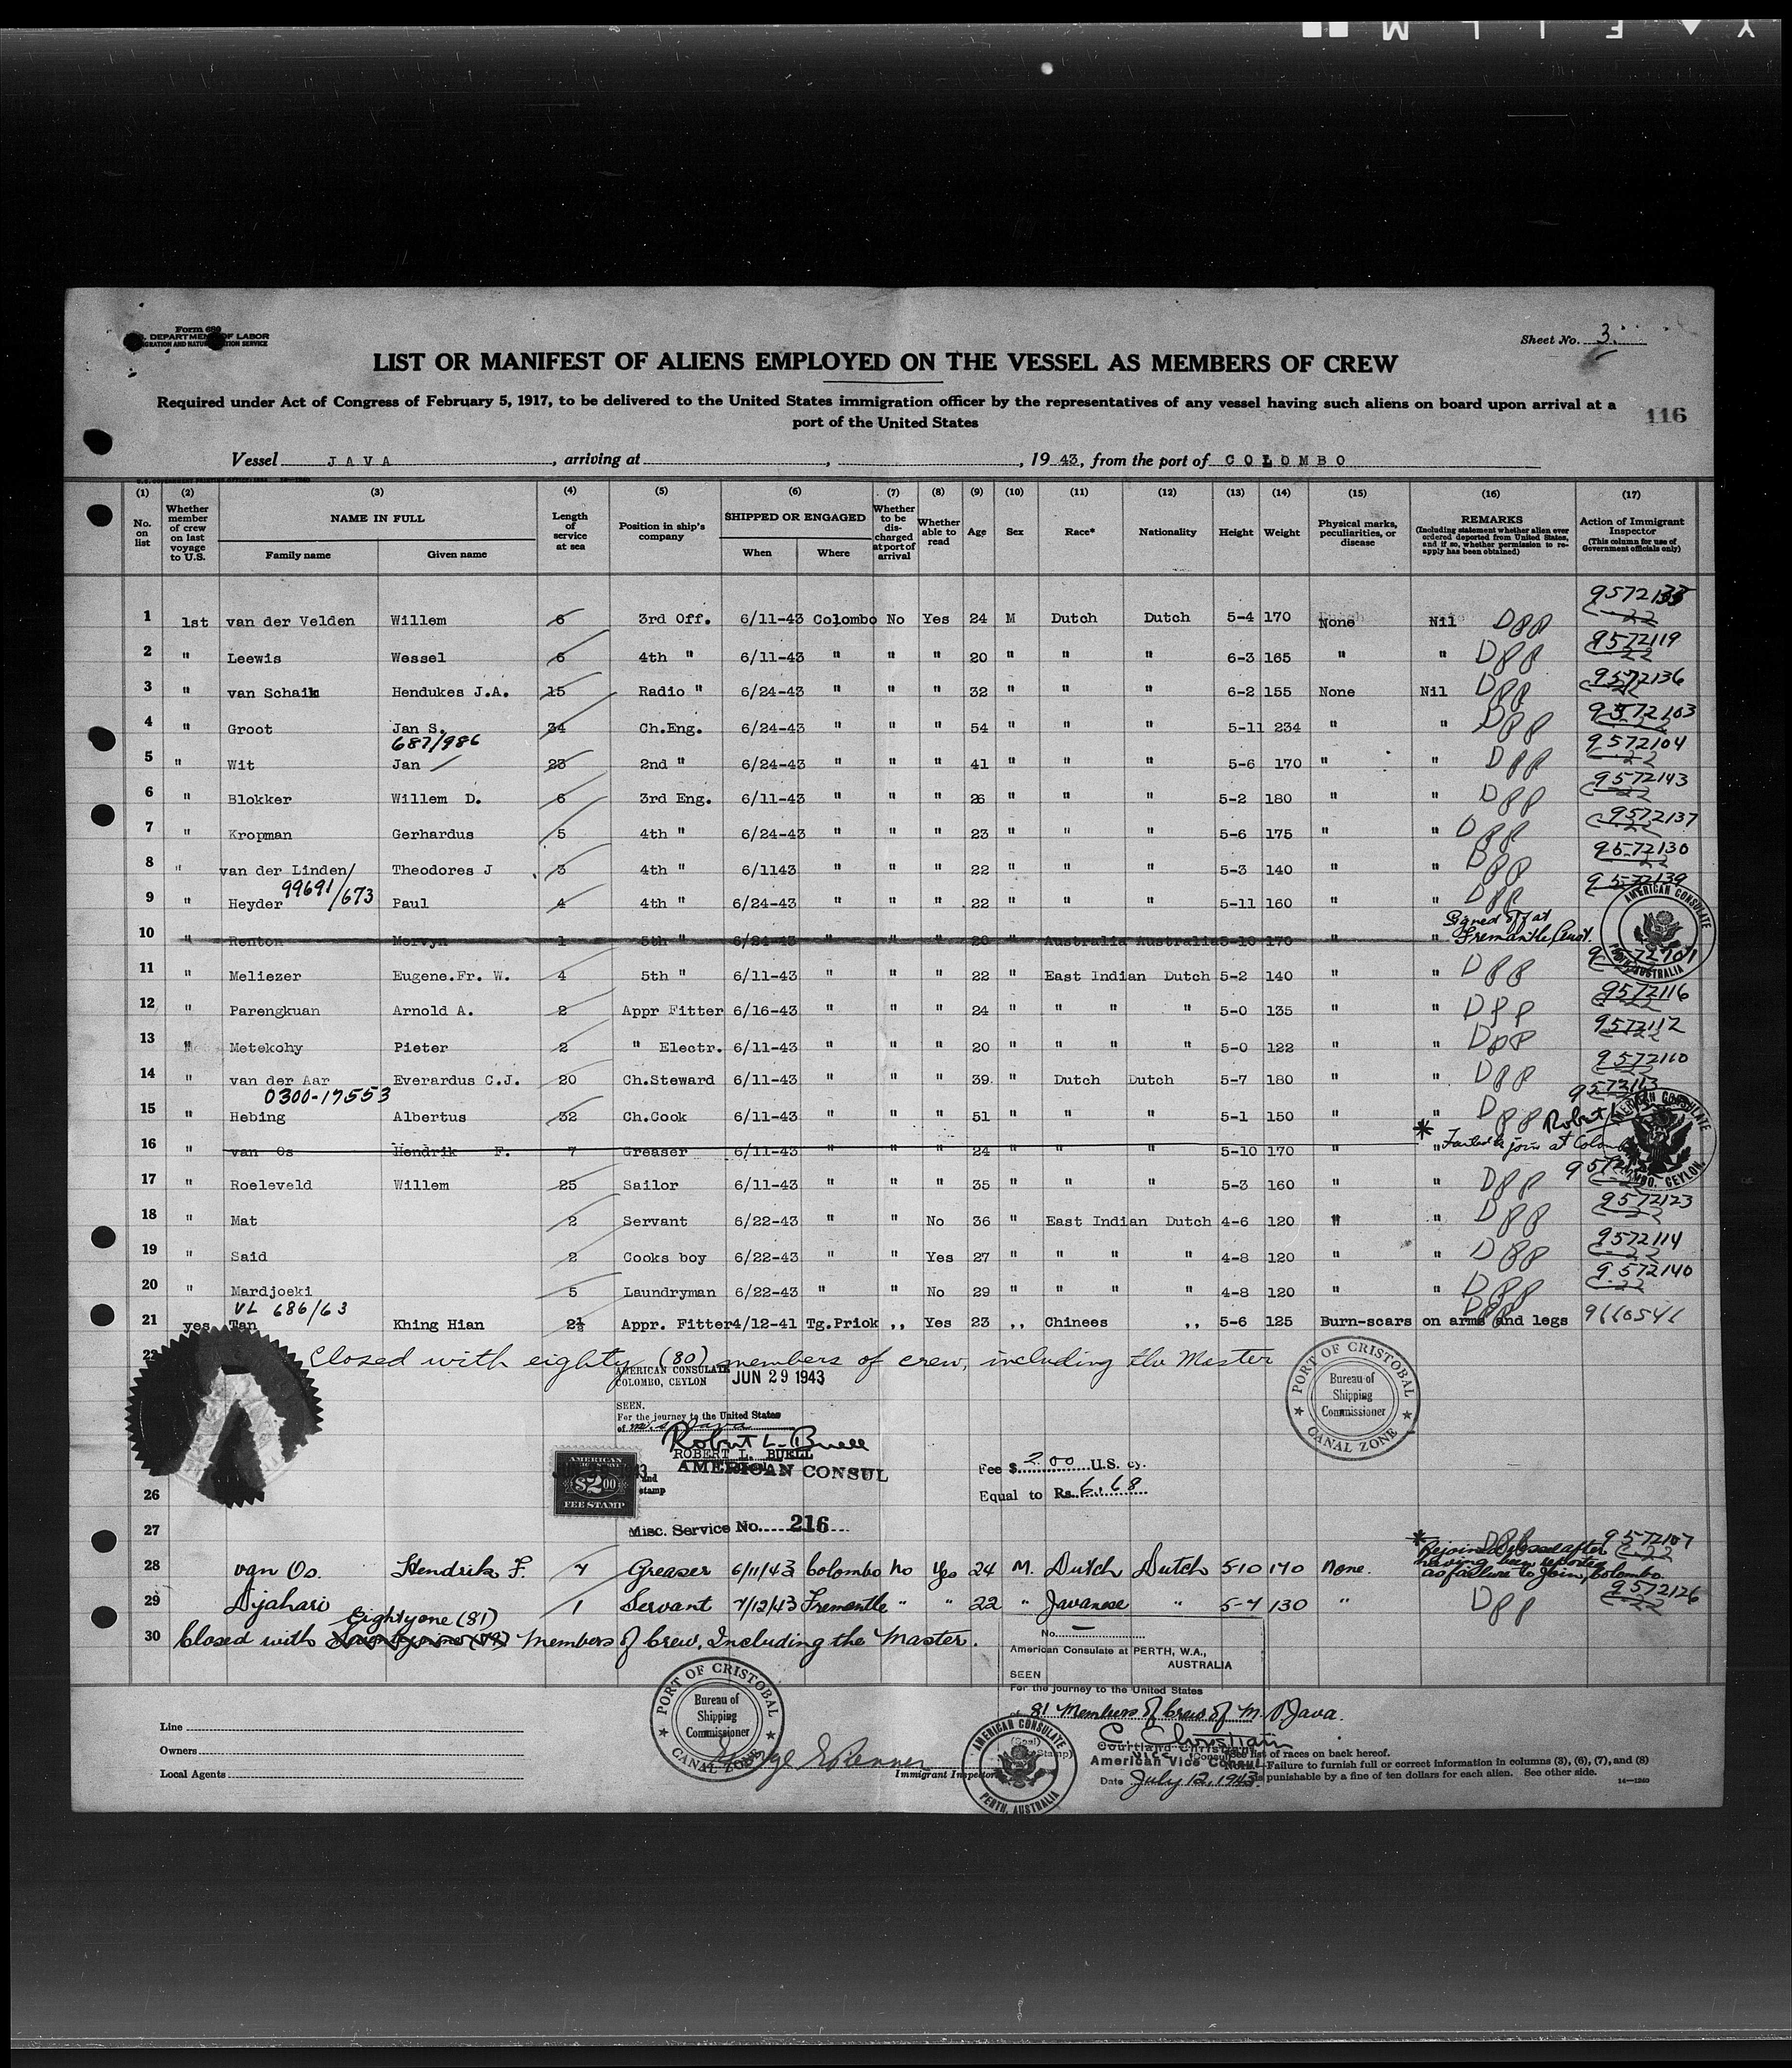 Y ▲ F I L M
Form 680
DEPARTMENT OF LABOR
IMMIGRATION AND NATURALIZATION SERVICE
Sheet No. 3
LIST OR MANIFEST OF ALIENS EMPLOYED ON THE VESSEL AS MEMBERS OF CREW
Required under Act of Congress of February 5, 1917, to be delivered to the United States immigration officer by the representatives of any vessel having such aliens on board upon arrival at a
port of the United States
116
Vessel JAVA, arriving at , , 19 43, from the port of COLOMBO
(1) (2) (3) (4) (5) (6) (7) (8) (9) (10) (11) (12) (13) (14) (15) (16) (17)
No. on list
Whether member of crew on last voyage to U.S.
NAME IN FULL
Family name
Given name
Length of service at sea
Position in ship's company
SHIPPED OR ENGAGED
When
Where
Whether to be discharged at port of arrival
Whether able to read
Age
Sex
Race*
Nationality
Height
Weight
Physical marks, peculiarities, or disease
REMARKS
(Including statement whether alien ever ordered deported from United States, and if so, whether permission to re-apply has been obtained)
Action of Immigrant Inspector
(This column for use of Government officials only)
1 1st van der Velden Willem 6 3rd Off. 6/11-43 Colombo No Yes 24 M Dutch Dutch 5-4 170 None Nil DPP
2 " Leewis Wessel 6 4th " 6/11-43 " " " 20 " " " 6-3 165 " " DPP 9572119
3 " van Schaik Hendukes J.A. 15 Radio " 6/24-43 " " " 32 " " " 6-2 155 None Nil DPP 9572136
4 " Groot Jan S. 34 Ch.Eng. 6/24-43 " " " 54 " " " 5-11 234 " " DPP 9572103
687/986
5 " Wit Jan 23 2nd " 6/24-43 " " " 41 " " " 5-6 170 " " DPP 9572104
6 " Blokker Willem D. 6 3rd Eng. 6/11-43 " " " 26 " " " 5-2 180 " " DPP 9572143
7 " Kropman Gerhardus 5 4th " 6/24-43 " " " 23 " " " 5-6 175 " " DPP 9572137
8 " van der Linden Theodores J 3 4th " 6/1143 " " " 22 " " " 5-3 140 " " DPP 9572130
99691/673
9 " Heyder Paul 4 4th " 6/24-43 " " " 22 " " " 5-11 160 " " DPP 9572139
10 " Renton Mervyn 1 5th " 6/24-43 " " " 20 " Australia Australia 5-10 170 " " Signed off at Fremantle, Aust.
AMERICAN CONSULATE PERTH, AUSTRALIA
11 " Meliezer Eugene.Fr. W. 4 5th " 6/11-43 " " " 22 " East Indian Dutch 5-2 140 " " DPP
12 " Parengkuan Arnold A. 2 Appr Fitter 6/16-43 " " " 24 " " " " 5-0 135 " " DPP 9572116
13 " Metekohy Pieter 2 " Electr. 6/11-43 " " " 20 " " " " 5-0 122 " " DPP 9572112
14 " van der Aar Everardus C.J. 20 Ch.Steward 6/11-43 " " " 39 " Dutch Dutch 5-7 180 " " DPP 9572110
0300-17553
15 " Hebing Albertus 32 Ch.Cook 6/11-43 " " " 51 " " " 5-1 150 " " DPP 9572113
16 " van Os Hendrik F. 7 Greaser 6/11-43 " " " 24 " " " 5-10 170 " * " Failed to join at Colombo
AMERICAN CONSULATE COLOMBO, CEYLON.
17 " Roeleveld Willem 25 Sailor 6/11-43 " " " 35 " " " 5-3 160 " " DPP
18 " Mat 2 Servant 6/22-43 " " No 36 " East Indian Dutch 4-6 120 " " DPP 9572123
19 " Said 2 Cooks boy 6/22-43 " " Yes 27 " " " " 4-8 120 " " DPP 9572114
20 " Mardjoeki 5 Laundryman 6/22-43 " " No 29 " " " " 4-8 120 " " DPP 9572140
VL 686/63
21 yes Tan Khing Hian 2½ Appr. Fitter 4/12-41 Tg.Priok ,, Yes 23 ,, Chinees ,, 5-6 125 Burn-scars on arms and legs DPP 9660541
22 Closed with eighty (80) members of crew, including the Master
AMERICAN CONSULATE
COLOMBO, CEYLON JUN 29 1943
SEEN.
For the journey to the United States
of m.s. Java
Robert L. Buell
ROBERT L. BUELL
AMERICAN CONSUL
AMERICAN
$2 00
FEE STAMP
Fee $ 2.00 U.S. cy.
Equal to Rs. 6.68
PORT OF CRISTOBAL
Bureau of
Shipping
Commissioner
CANAL ZONE
26
27
Misc. Service No. 216
28 van Os. Hendrik F. 7 Greaser 6/11/43 Colombo No Yes 24 M. Dutch Dutch 510 170 None. * Rejoined vessel after having been reported as failure to join, Colombo. DPP 9572107
29 Djahari 1 Servant 7/12/43 Fremantle " " 22 " Javanese " 5-7 130 " DPP 9572126
Eightyone (81)
30 Closed with Seventynine (79) Members of Crew, Including the Master.
No. —
American Consulate at PERTH, W.A.,
AUSTRALIA
SEEN
For the journey to the United States
of 81 Members of Crew of M.V Java.
Courtland Christiani
American Vice Consul
Date July 12, 1943
AMERICAN CONSULATE PERTH, AUSTRALIA
PORT OF CRISTOBAL
Bureau of
Shipping
Commissioner
CANAL ZONE
Line
Owners
Local Agents
Immigrant Inspector
See list of races on back hereof.
Note.—Failure to furnish full or correct information in columns (3), (6), (7), and (8)
is punishable by a fine of ten dollars for each alien. See other side.
14—1240